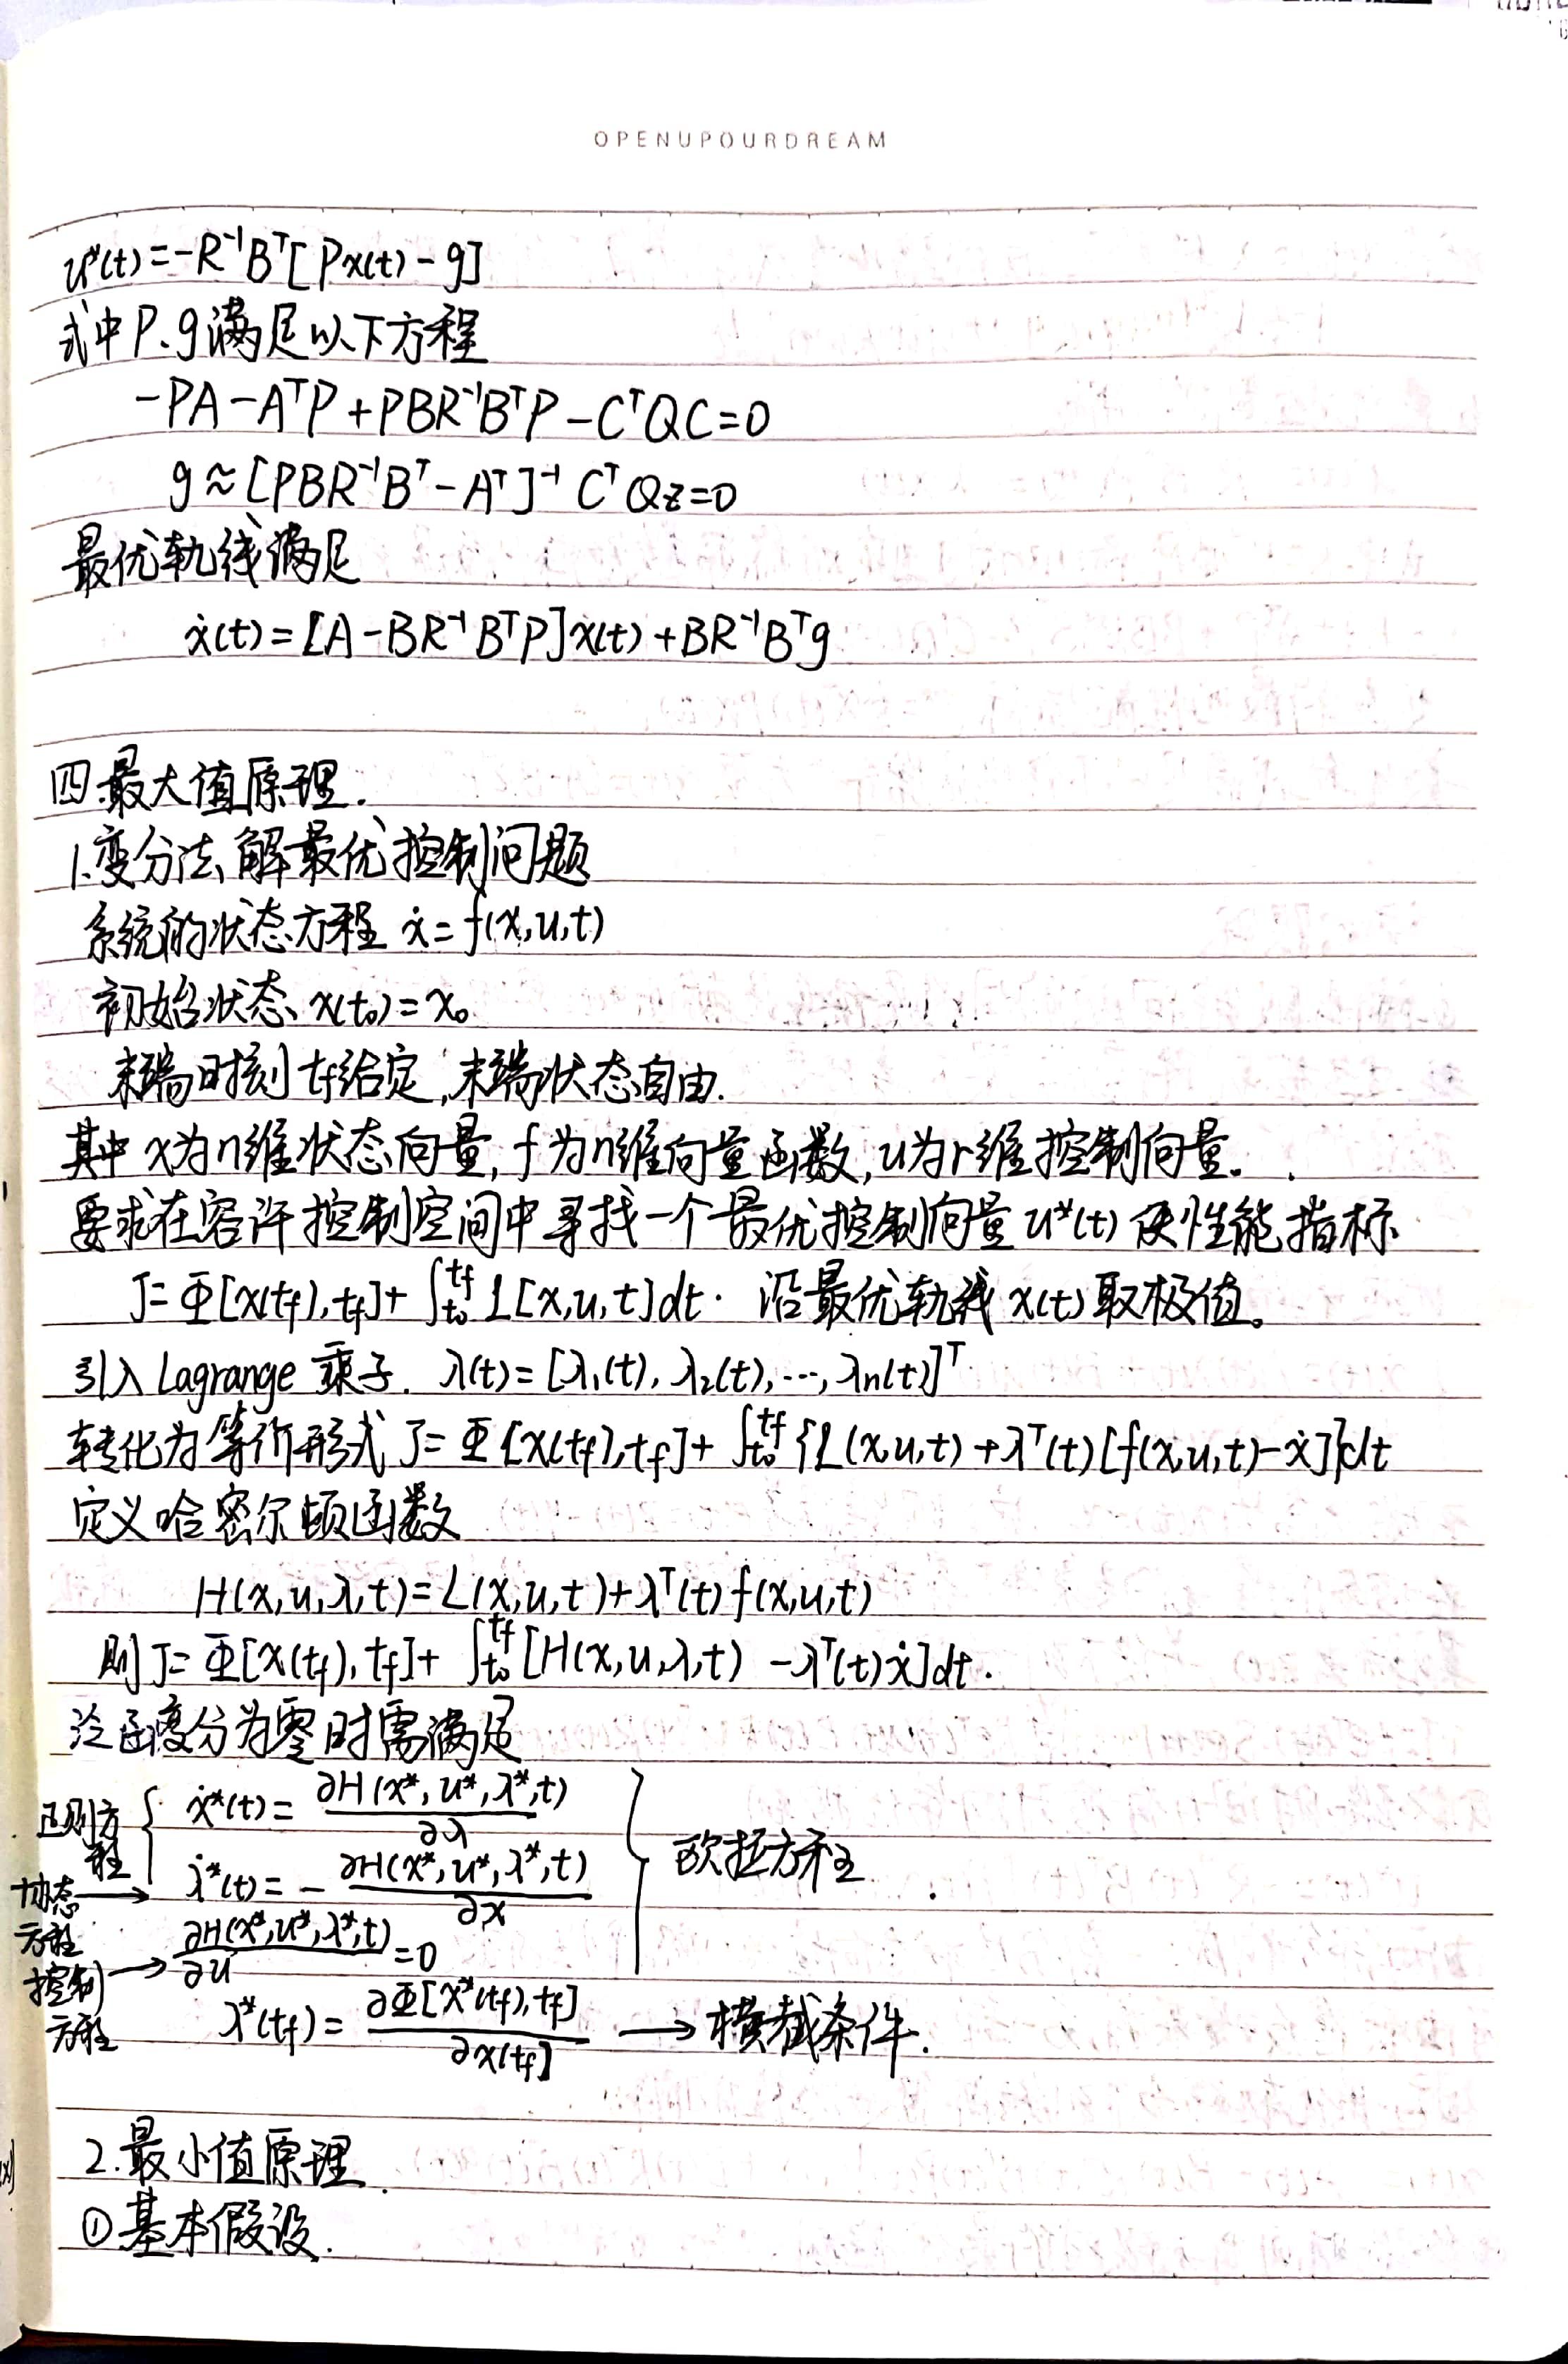 OPENUPOURDREAM
u*(t)=-R⁻¹Bᵀ[Px(t)-g]
式中P.g满足以下方程
-PA-AᵀP+PBR⁻¹BᵀP-CᵀQC=0
g≈[PBR⁻¹Bᵀ-Aᵀ]⁻¹CᵀQz=0
最优轨线满足
ẋ(t)=[A-BR⁻¹BᵀP]x(t)+BR⁻¹Bᵀg
四.最大值原理.
1.变分法解最优控制问题
系统的状态方程 ẋ=f(x,u,t)
初始状态 x(t₀)=x₀
末端时刻tf给定,末端状态自由.
其中x为n维状态向量,f为n维向量函数,u为r维控制向量.
要求在容许控制空间中寻找一个最优控制向量u*(t)使性能指标
J=Φ[x(tf),tf]+∫_{t₀}^{tf}L[x,u,t]dt. 沿最优轨线x(t)取极值。
引入Lagrange乘子. λ(t)=[λ₁(t),λ₂(t),…,λn(t)]ᵀ
转化为等价形式 J=Φ[x(tf),tf]+∫_{t₀}^{tf}{L(x,u,t)+λᵀ(t)[f(x,u,t)-ẋ]}dt
定义哈密尔顿函数
H(x,u,λ,t)=L(x,u,t)+λᵀ(t)f(x,u,t)
则J=Φ[x(tf),tf]+∫_{t₀}^{tf}[H(x,u,λ,t)-λᵀ(t)ẋ]dt.
泛函变分为零时需满足
正则方程 { ẋ*(t)=∂H(x*,u*,λ*,t)/∂λ } 欧拉方程
协态方程 → λ̇*(t)=-∂H(x*,u*,λ*,t)/∂x
控制方程 → ∂H(x*,u*,λ*,t)/∂u=0
λ*(tf)=∂Φ[x*(tf),tf]/∂x(tf) → 横截条件.
2.最小值原理
①基本假设.